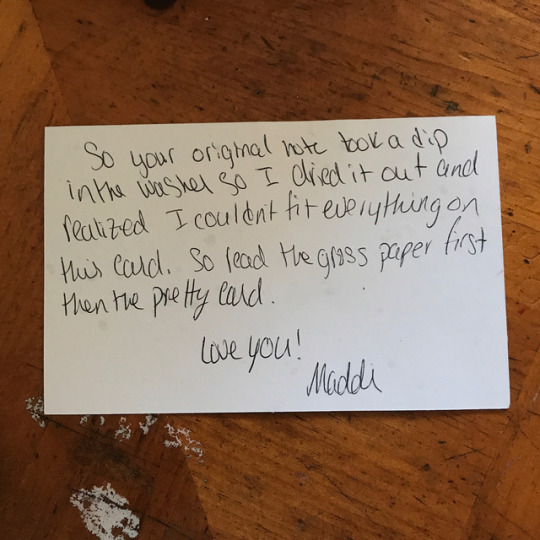 So your original note took a dip
in the washer so I dried it out and
realized I couldn't fit everything on
this card. So read the gross paper first
then the pretty card.
Love you!
Maddi